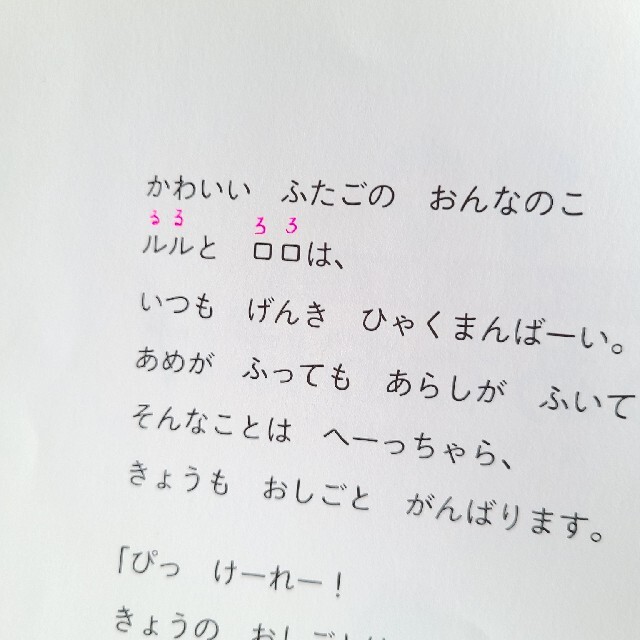 かわいい　ふたごの　おんなのこ
るる　ろろ
ルルと　ロロは、
いつも　げんき　ひゃくまんばーい。
あめが　ふっても　あらしが　ふいて
そんなことは　へーっちゃら、
きょうも　おしごと　がんばります。
「ぴっ　けーれー！
きょうの　おしごとは